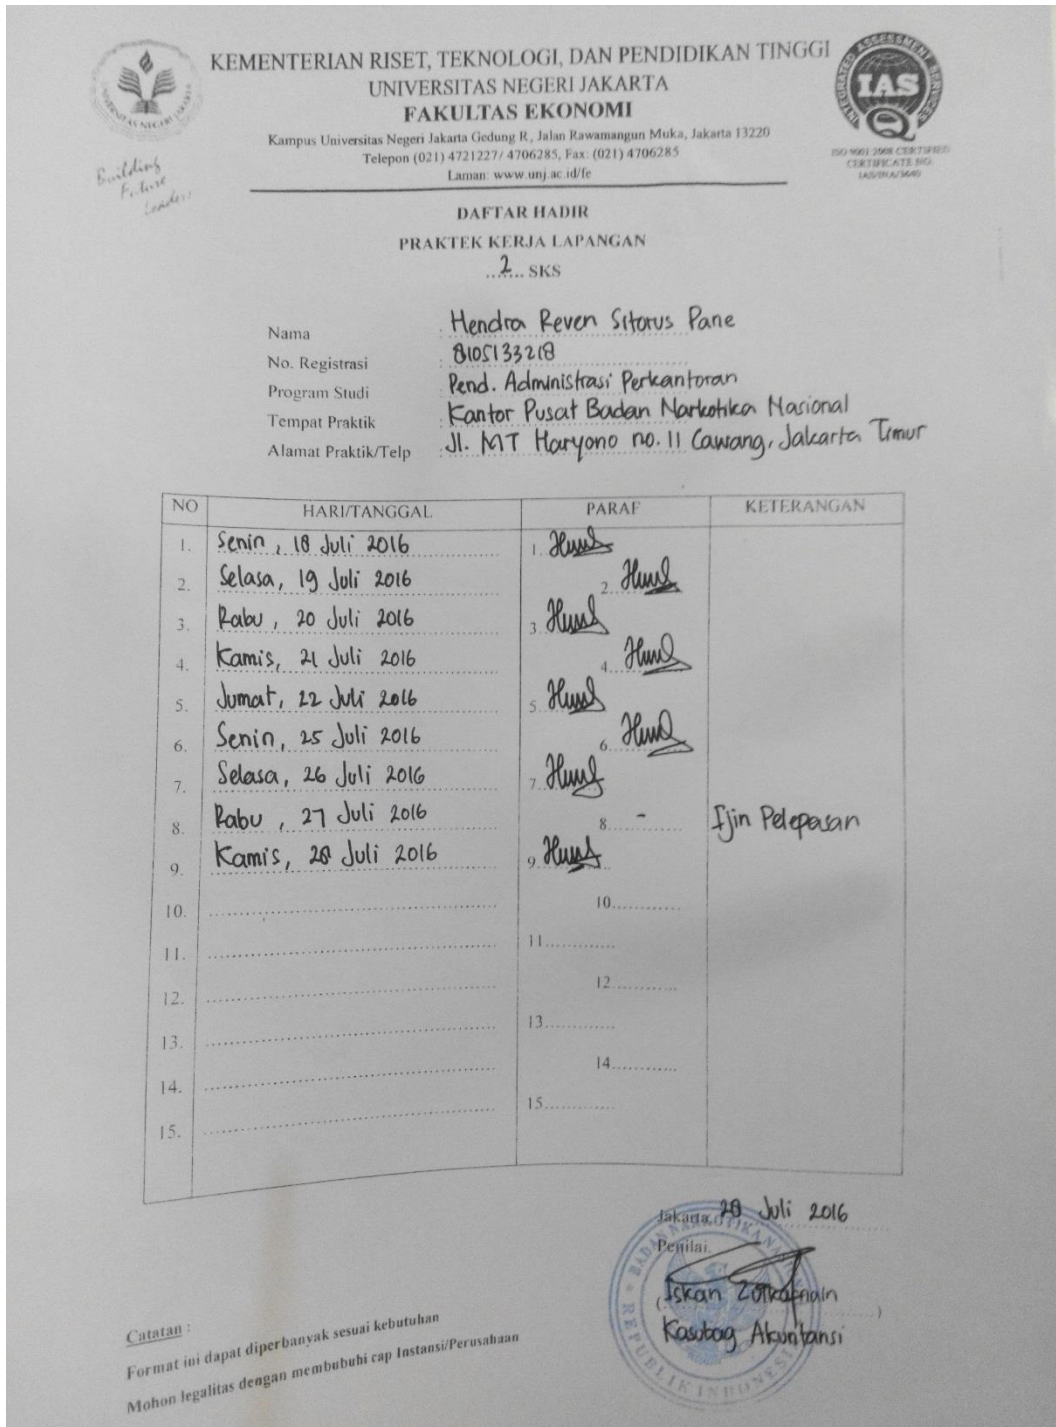 KEMENTERIAN RISET, TEKNOLOGI, DAN PENDIDIKAN TINGGI
UNIVERSITAS NEGERI JAKARTA
FAKULTAS EKONOMI
Kampus Universitas Negeri Jakarta Gedung R, Jalan Rawamangun Muka, Jakarta 13220
Telepon (021) 4721227/ 4706285, Fax: (021) 4706285
Laman: www.unj.ac.id/fe
UNIVERSITAS NEGERI JAKARTA
Building
Future
Leaders
INTEGRATED ASSESSMENT SERVICES
IAS
ISO 9001:2008 CERTIFIED
CERTIFICATE NO.
DAFTAR HADIR
PRAKTEK KERJA LAPANGAN
...2... SKS
Nama : Hendra Reven Sitorus Pane
No. Registrasi : 8105133218
Program Studi : Pend. Administrasi Perkantoran
Tempat Praktik : Kantor Pusat Badan Narkotika Nasional
Alamat Praktik/Telp : Jl. MT Haryono no. 11 Cawang, Jakarta Timur
NO HARI/TANGGAL PARAF KETERANGAN
1. Senin, 18 Juli 2016 1.
2. Selasa, 19 Juli 2016 2.
3. Rabu, 20 Juli 2016 3.
4. Kamis, 21 Juli 2016 4.
5. Jumat, 22 Juli 2016 5.
6. Senin, 25 Juli 2016 6.
7. Selasa, 26 Juli 2016 7.
8. Rabu, 27 Juli 2016 8. - Ijin Pelepasan
9. Kamis, 28 Juli 2016 9.
10. 10.
11. 11.
12. 12.
13. 13.
14. 14.
15. 15.
Jakarta, 28 Juli 2016
Penilai,
(Iskan Zulkarnain)
Kasubag Akuntansi
BADAN NARKOTIKA
REPUBLIK INDONESIA
Catatan :
Format ini dapat diperbanyak sesuai kebutuhan
Mohon legalitas dengan membubuhi cap Instansi/Perusahaan